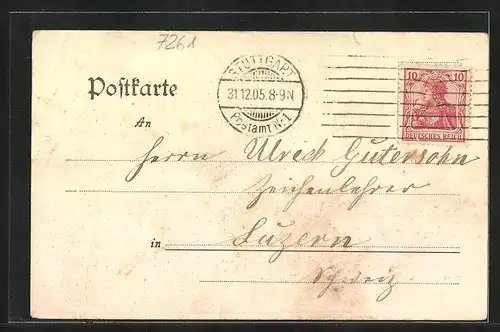 7261
STUTTGART
31.12.05.8-9N
Postamt No 1
10 10
DEUTSCHES REICH
Postkarte
An
Herrn Ulrich Gutersohn
Zeichenlehrer
in Luzern
Schweiz